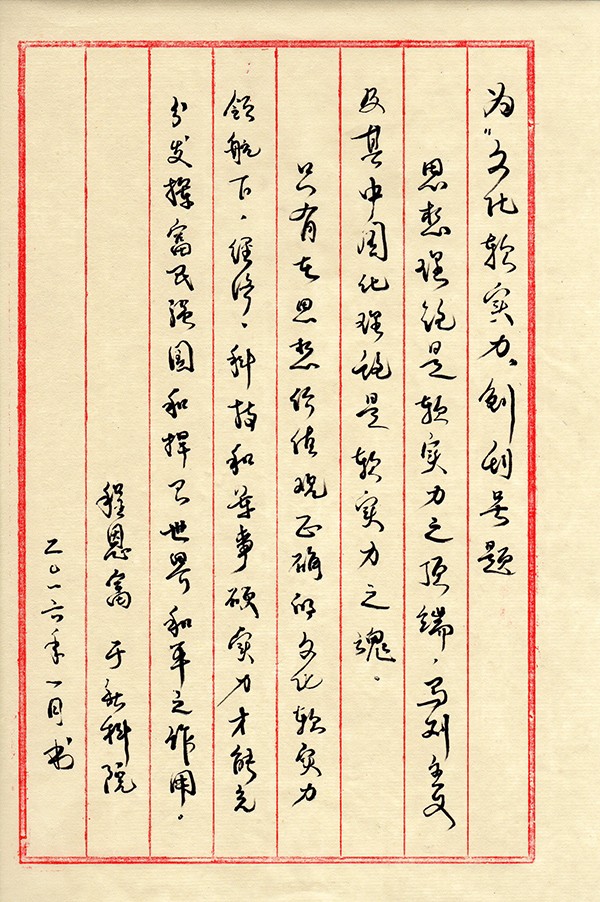 为“文化软实力”创刊号题
思想理论是软实力之顶端，马列主义
及其中国化理论是软实力之魂。
只有在思想价值观正确的文化软实力
领航下，经济、科技和军事硬实力才能充
分发挥富民强国和捍卫世界和平之作用。
程恩富 于社科院
二〇一六年一月书